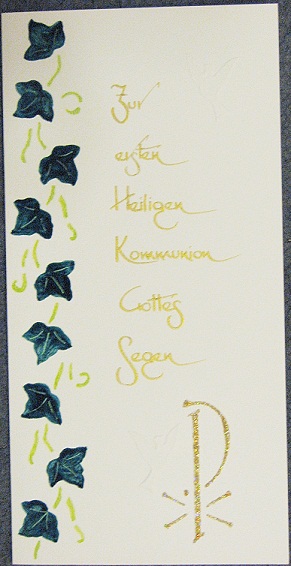 Zur
ersten
Heiligen
Kommunion
Gottes
Segen